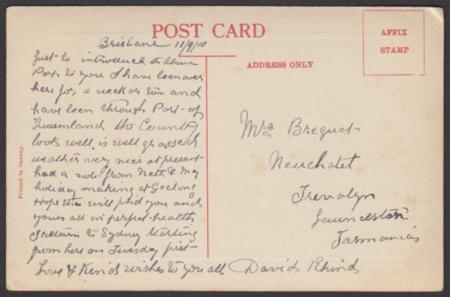 POST CARD
AFFIX
STAMP
ADDRESS ONLY
Printed in Saxony.
Brisbane 11/9/10
Just to introduce the above
Party to you I have been over
here for a week or two and
have been through Part of
Queensland the Country
looks well, is well grassed
weather very nice at present
had a note from Nett &
holiday making at Geelong
Hope this will find you and
yours all in perfect health
I return to Sydney starting
from here on Tuesday first
Love & Kind wishes to you all David Rhind
Mrs Breguet
Neuchatel
Trevallyn
Launceston
Tasmania